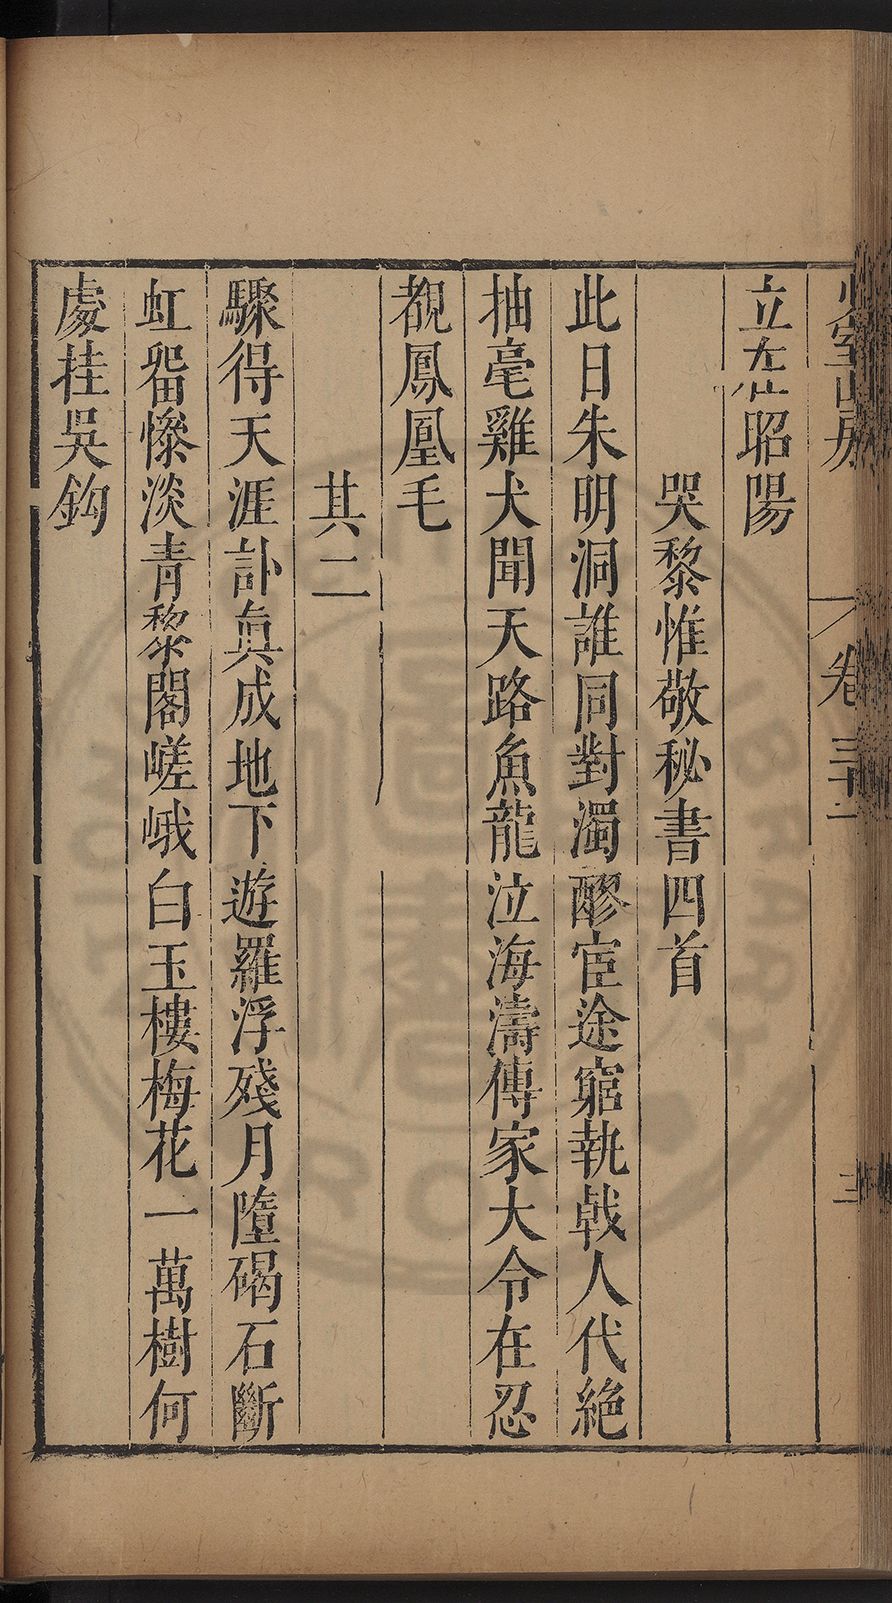 少室山房 卷三十二
立在昭陽
哭黎惟敬秘書四首
此日朱明洞誰同對濁醪宦途窮執戟人代絶
抽毫雞犬聞天路魚龍泣海濤傳家大令在忍
覩鳳凰毛
其二
驟得天涯訃眞成地下遊羅浮殘月墮碣石斷
虹畱慘淡青黎閣嵯峨白玉樓梅花一萬樹何
處挂吳鈎